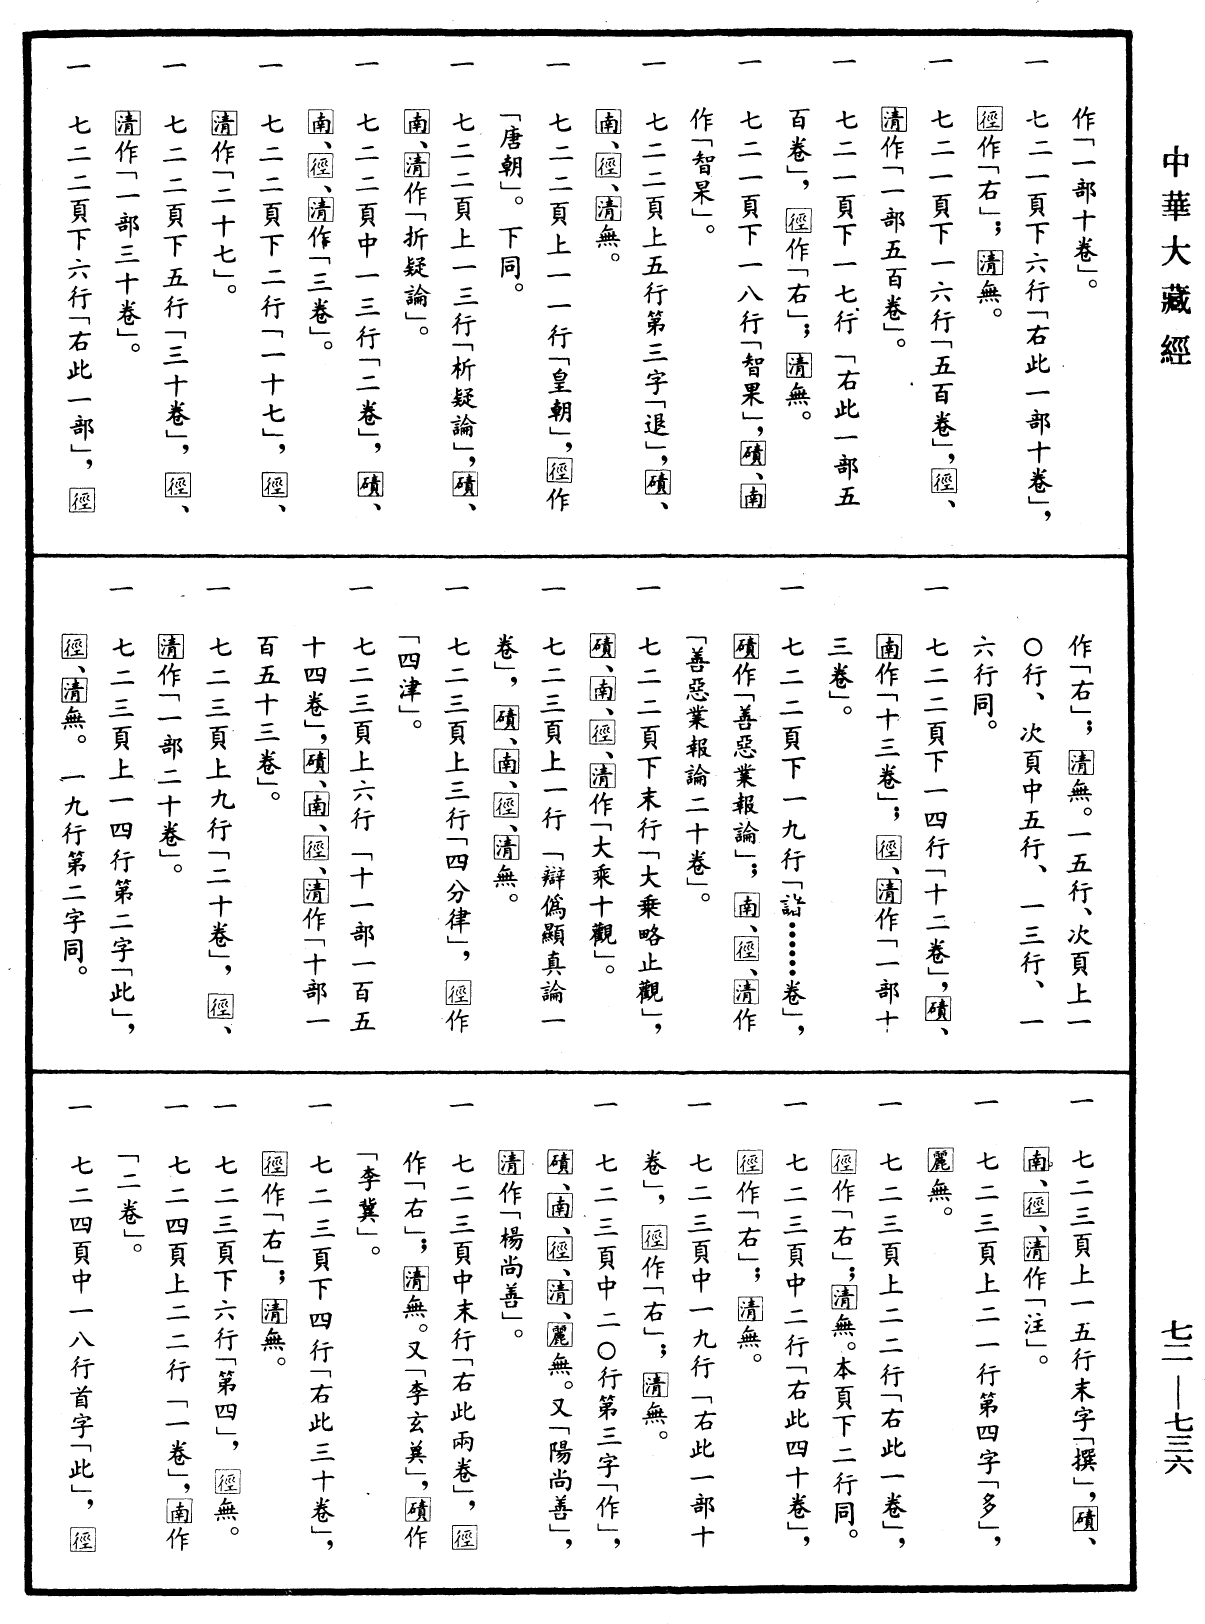 中華大藏經
七二—七三六
作「一部十卷」。
一 七二一頁下六行「右此一部十卷」，
徑作「右」；清無。
一 七二一頁下一六行「五百卷」，徑、
清作「一部五百卷」。
一 七二一頁下一七行「右此一部五
百卷」，徑作「右」；清無。
一 七二一頁下一八行「智果」，磧、南
作「智杲」。
一 七二二頁上五行第三字「退」，磧、
南、徑、清無。
一 七二二頁上一一行「皇朝」，徑作
「唐朝」。下同。
一 七二二頁上一三行「析疑論」，磧、
南、清作「折疑論」。
一 七二二頁中一三行「二卷」，磧、
南、徑、清作「三卷」。
一 七二二頁下二行「一十七」，徑、
清作「二十七」。
一 七二二頁下五行「三十卷」，徑、
清作「一部三十卷」。
一 七二二頁下六行「右此一部」，徑
作「右」；清無。一五行、次頁上一
〇行、次頁中五行、一三行、一
六行同。
一 七二二頁下一四行「十二卷」，磧、
南作「十三卷」；徑、清作「一部十
三卷」。
一 七二二頁下一九行「諮……卷」，
磧作「善惡業報論」；南、徑、清作
「善惡業報論二十卷」。
一 七二二頁下末行「大乘略止觀」，
磧、南、徑、清作「大乘十觀」。
一 七二三頁上一行「辯僞顯真論一
卷」，磧、南、徑、清無。
一 七二三頁上三行「四分律」，徑作
「四津」。
一 七二三頁上六行「十一部一百五
十四卷」，磧、南、徑、清作「十部一
百五十三卷」。
一 七二三頁上九行「二十卷」，徑、
清作「一部二十卷」。
一 七二三頁上一四行第二字「此」，
徑、清無。一九行第二字同。
一 七二三頁上一五行末字「撰」，磧、
南、徑、清作「注」。
一 七二三頁上二一行第四字「多」，
麗無。
一 七二三頁上二二行「右此一卷」，
徑作「右」；清無。本頁下二行同。
一 七二三頁中二行「右此四十卷」，
徑作「右」；清無。
一 七二三頁中一九行「右此一部十
卷」，徑作「右」；清無。
一 七二三頁中二〇行第三字「作」，
磧、南、徑、清、麗無。又「陽尚善」，
清作「楊尚善」。
一 七二三頁中末行「右此兩卷」，徑
作「右」；清無。又「李玄䒤」，磧作
「李冀」。
一 七二三頁下四行「右此三十卷」，
徑作「右」；清無。
一 七二三頁下六行「第四」，徑無。
一 七二四頁上二二行「一卷」，南作
「二卷」。
一 七二四頁中一八行首字「此」，徑